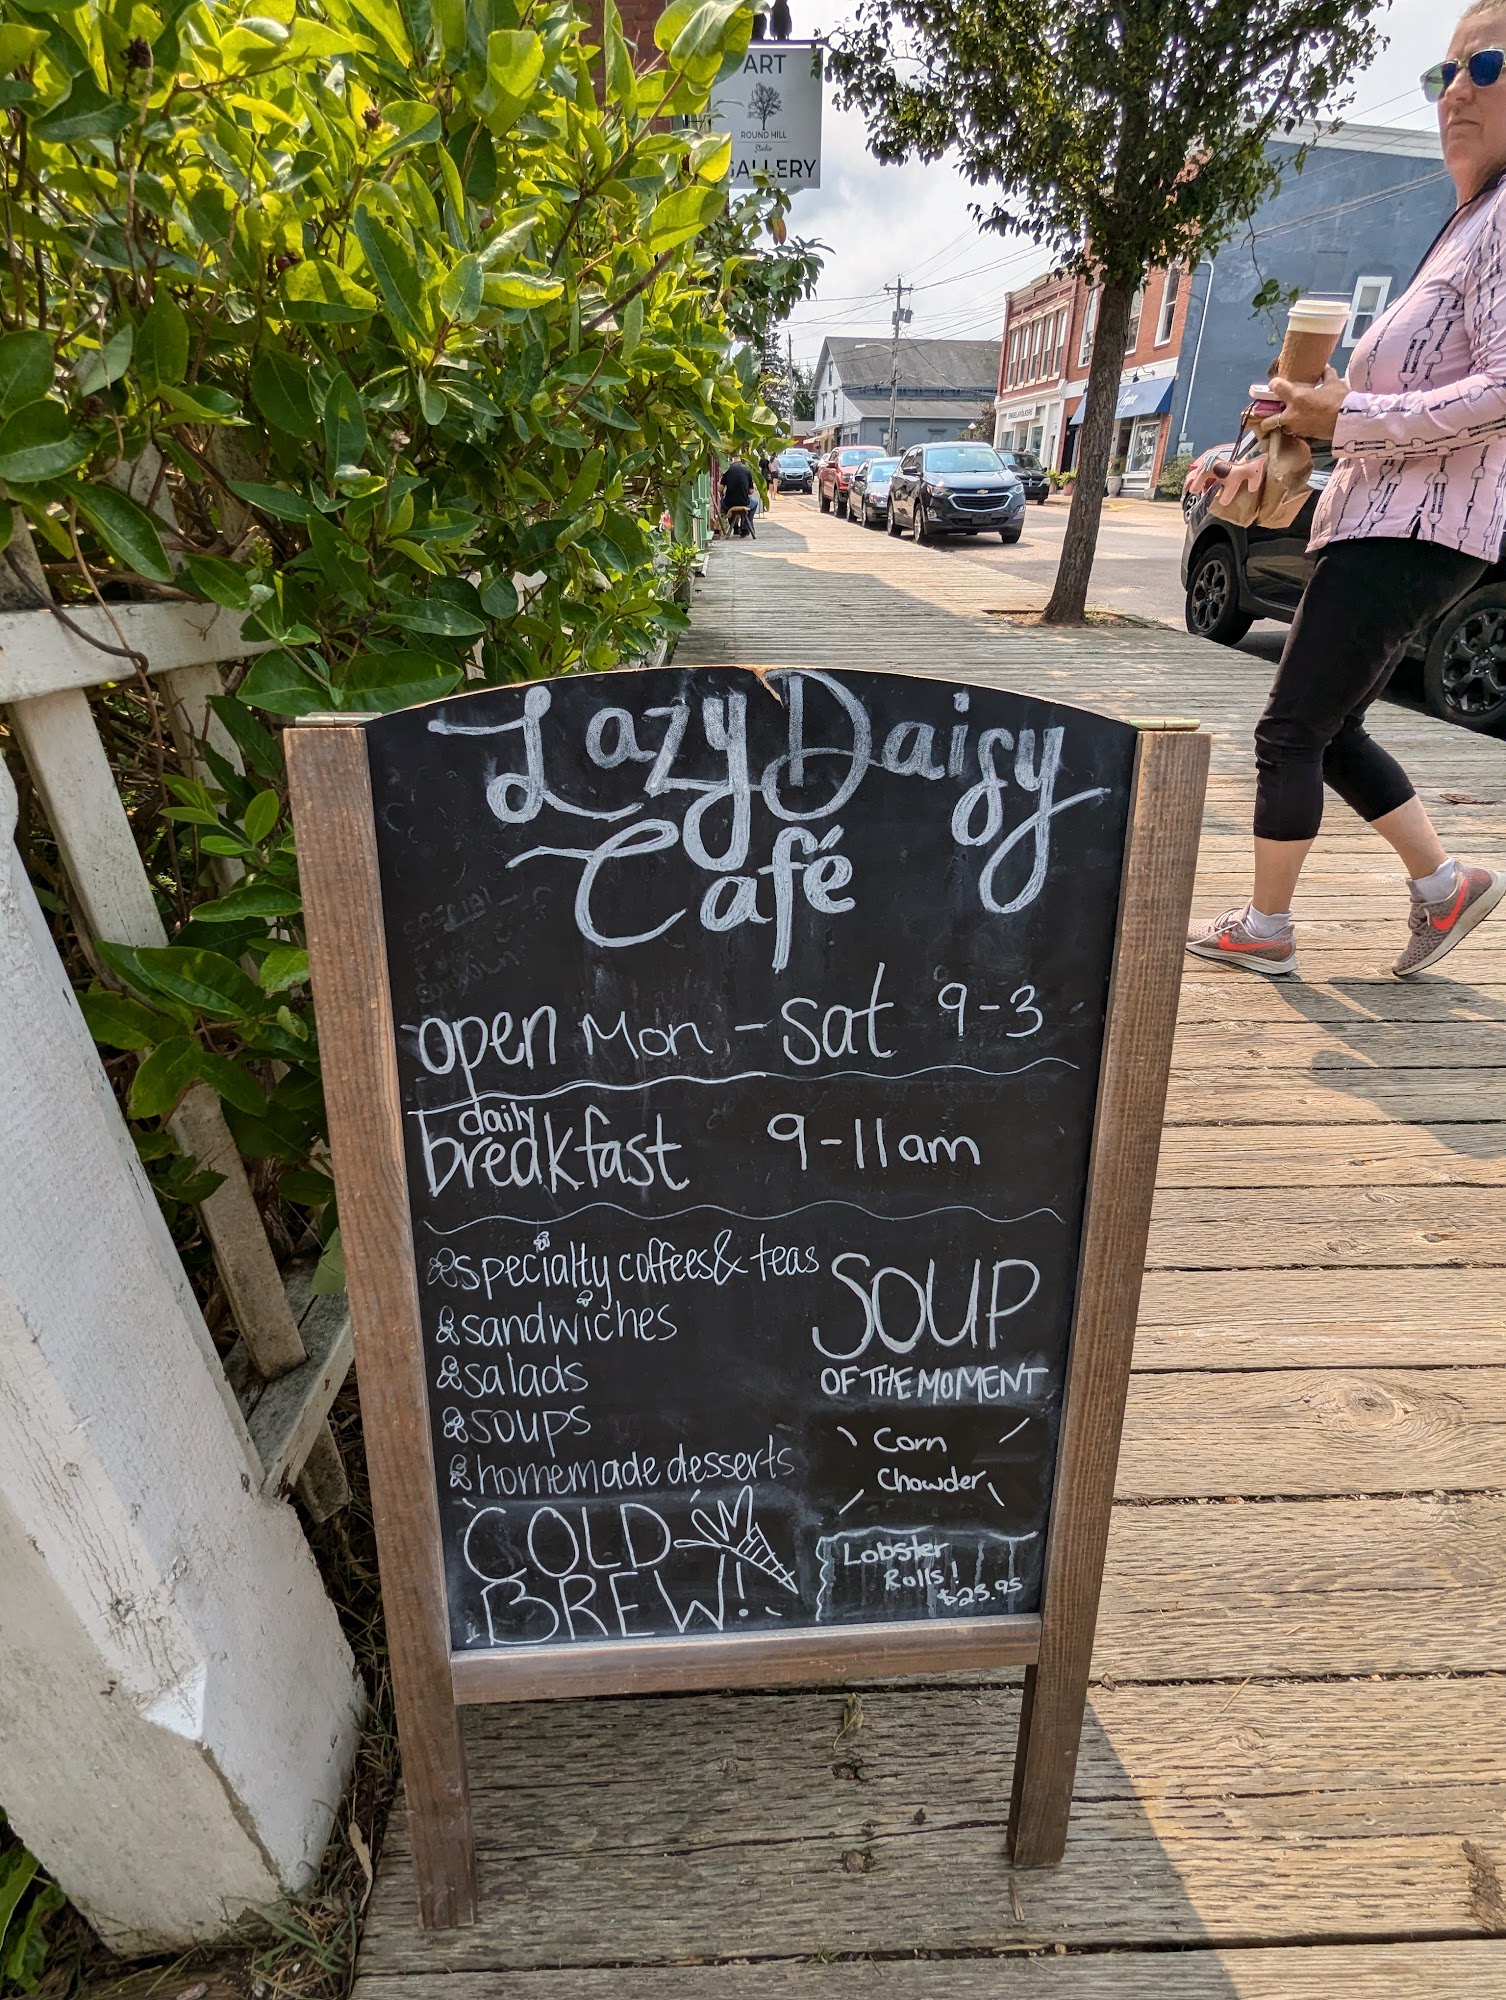 ART
ROUND HILL
Studio
GALLERY
Lazy Daisy
Café
open Mon - Sat 9-3
daily
breakfast 9-11am
specialty coffees & teas
sandwiches
salads
soups
homemade desserts
COLD
BREW!
SOUP
OF THE MOMENT
Corn
Chowder
Lobster
Rolls!
$25.95